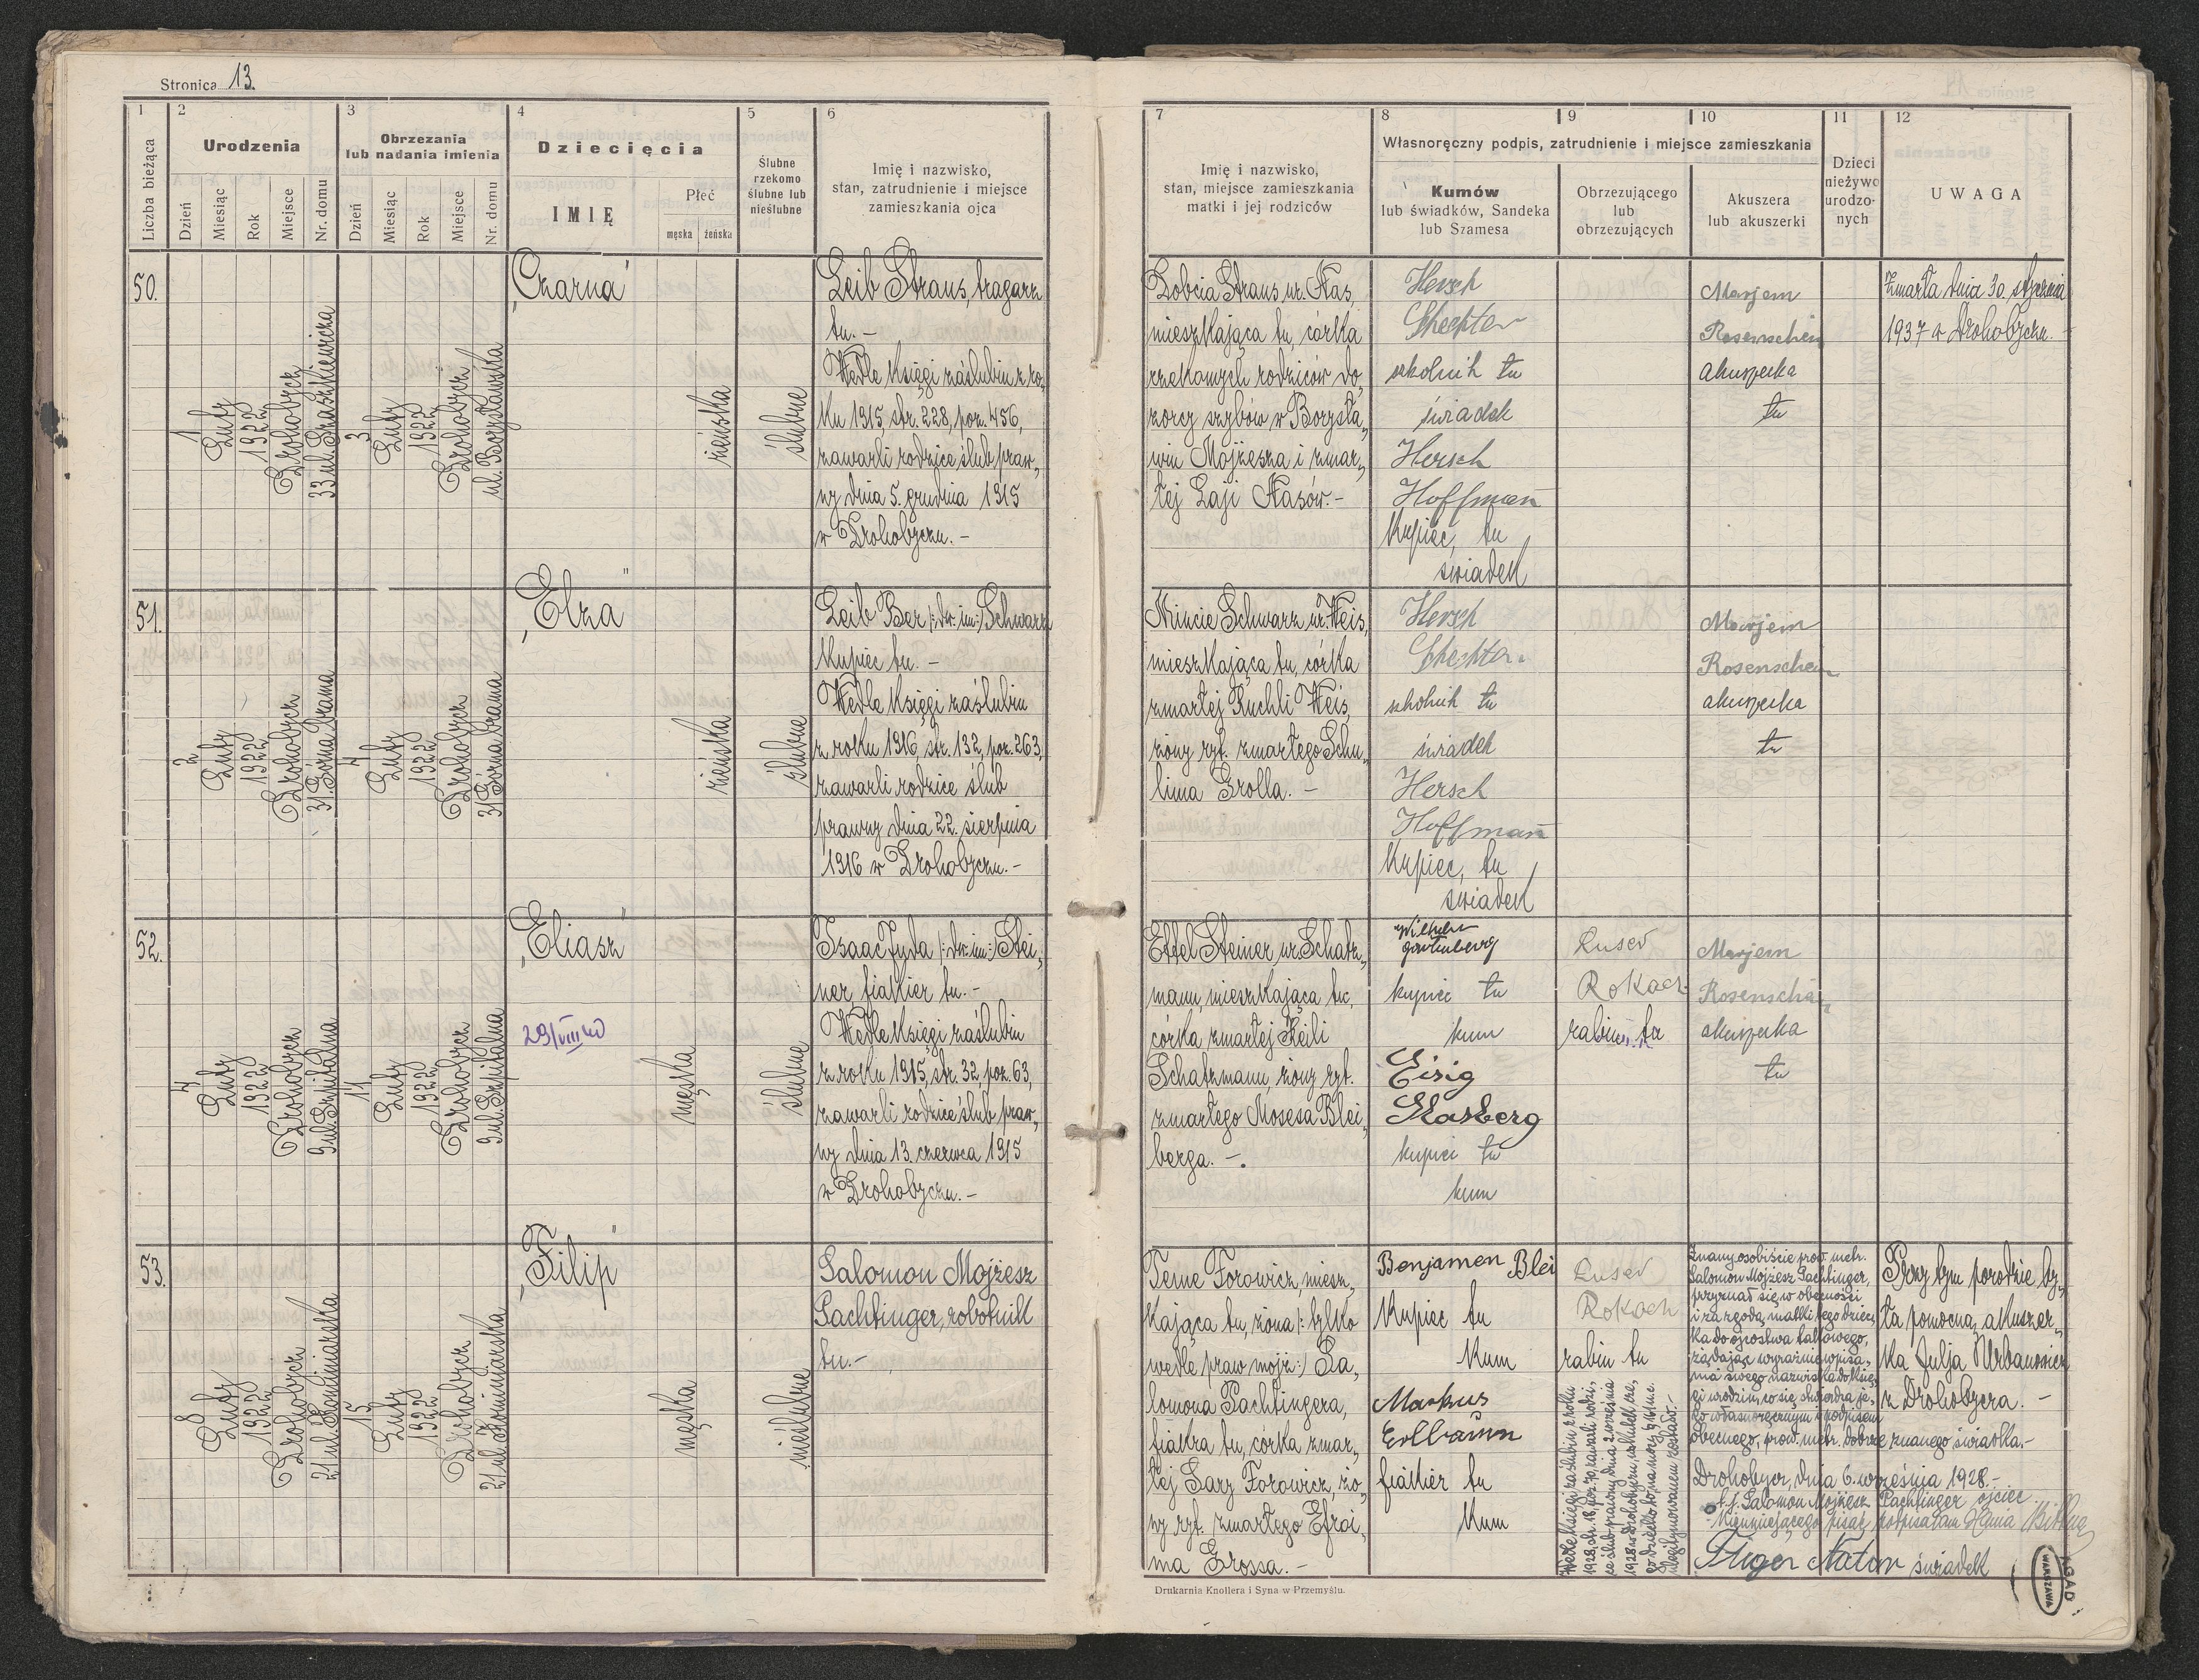 Stronica 13.
1 2 3 4 5 6
Liczba bieżąca
Urodzenia
Dzień Miesiąc Rok Miejsce Nr. domu
Obrzezania
lub nadania imienia
Dzień Miesiąc Rok Miejsce Nr. domu
Dziecięcia
IMIĘ
Płeć
męska żeńska
Ślubne
rzekomo
ślubne lub
nieślubne
Imię i nazwisko,
stan, zatrudnienie i miejsce
zamieszkania ojca
7 8 9 10 11 12
Imię i nazwisko,
stan, miejsce zamieszkania
matki i jej rodziców
Własnoręczny podpis, zatrudnienie i miejsce zamieszkania
Kumów
lub świadków, Sandeka
lub Szamesa
Obrzezującego
lub
obrzezujących
Akuszera
lub akuszerki
Dzieci
nieżywo
urodzo-
nych
UWAGA
50.
1
Luty
1922
Drohobycz
33 ul.
3
Luty
1922
Drohobycz
ul. Borysławska
„Czarna"
żeńska
ślubne
Leib Straus, tragarz
tu.-
Wedle księgi zaślubin z ro„
ku 1915, str. 228, poz. 456,
zawarli rodzice ślub praw„
ny dnia 5. grudnia 1915
w Drohobyczu.-
Straus ur. Kas,
mieszkająca tu, córka
rzekomych rodziców do„
zorcy szybów w Borysła„
wiu Mojżesza i zmar„
łej Laji Kasów.-
Hersch
Schechter
szkolnik tu
świadek
Hersch
Hoffman
Kupiec, tu
świadek
Marjem
Rosenschein
akuszerka
tu
Zmarła dnia 30. stycznia
1937 w Drohobyczu.-
51.
2
Luty
1922
Drohobycz
31 Górna brama
4
Luty
1922
Drohobycz
31 Górna brama
„Elza"
żeńska
ślubne
Leib Ber /:dw. im:/ Schwarz
kupiec tu.-
Wedle księgi zaślubin
z roku 1916, str. 132, poz. 263,
zawarli rodzice ślub
prawny dnia 22. sierpnia
1916 w Drohobyczu.-
Mincie Schwarz ur. Weis,
mieszkająca tu, córka
zmarłej Ruchli Weis,
żony ryt. zmarłego Schu„
lima Grolla.-
Hersch
Schechter
szkolnik tu
świadek
Hersch
Hoffman
Kupiec, tu
świadek
Marjem
Rosenschein
akuszerka
tu
52.
4
Luty
1922
Drohobycz
9 ul. Szpitalna
11
Luty
1922
Drohobycz
9 ul. Szpitalna
„Eliasz"
29/VIII 40
męska
ślubne
Isaac Juda /:dw. im:/ Stei„
ner, fiakier tu.-
Wedle księgi zaślubin
z roku 1915, str. 32, poz. 63,
zawarli rodzice ślub praw„
ny dnia 13. czerwca 1915
w Drohobyczu.-
Ettel Steiner, ur. Schatz„
mann, mieszkająca tu,
córka zmarłej Keili
Schatzmann, żony ryt.
zmarłego Mosesa Blei„
berga.-.
Wilhelm
Gartenberg
kupiec tu
kum
Eisig
Glasberg
kupiec tu
kum
Luser
Rokach
rabin tu
Marjem
Rosenschein
akuszerka
tu
53.
8
Luty
1922
Drohobycz
21 ul. Kominiarska
15
Luty
1922
Drohobycz
21 ul. Kominiarska
„Filip"
męska
nieślubne
Salomon Mojżesz
Pachtinger, robotnik
tu.-
Teme Forowicz, miesz„
kająca tu, żona /: tylko
wedle praw mojż:/ Sa„
lomona Pachtingera,
fiakra tu, córka zmar„
łej Sary Forowicz, żo„
ny ryt. zmarłego Efroi„
ma Grossa.-
Benjamen Blei
Kupiec tu
Kum
Markus
Erlbaum
fiakier tu
Kum
Luser
Rokach
rabin tu
Wedle księgi zaślubin z roku
1928, str. 18, poz. 70, zawarli rodzi„
ce ślub prawny dnia 2. września
1928 w Drohobyczu, wskutek cze„
go dziecko to na mocy § 161 u.c.
legitymowanem zostało.-
Znany osobiście prow. metr.
Salomon Mojżesz Pachtinger,
przyznał się w obecności
i za zgodą matki tego dziec„
ka do ojcostwa takowego,
żądając wyraźnie wpisa„
nia swego nazwiska do księ„
gi urodzin, co się stwierdza je„
go własnoręcznym podpisem
obecnego, prow. metr. dobrze znanego świadka.-
Drohobycz, dnia 6. września 1928.-
Salomon Mojżesz Pachtinger ojciec
Nieumiejącego pisać podpisałam
Natan świadek
Przy tym porodzie by„
ła pomocną akuszer„
ka Julja Urbanowicz
z Drohobycza.-
Drukarnia Knollera i Syna w Przemyślu.
AGAD
WARSZAWA